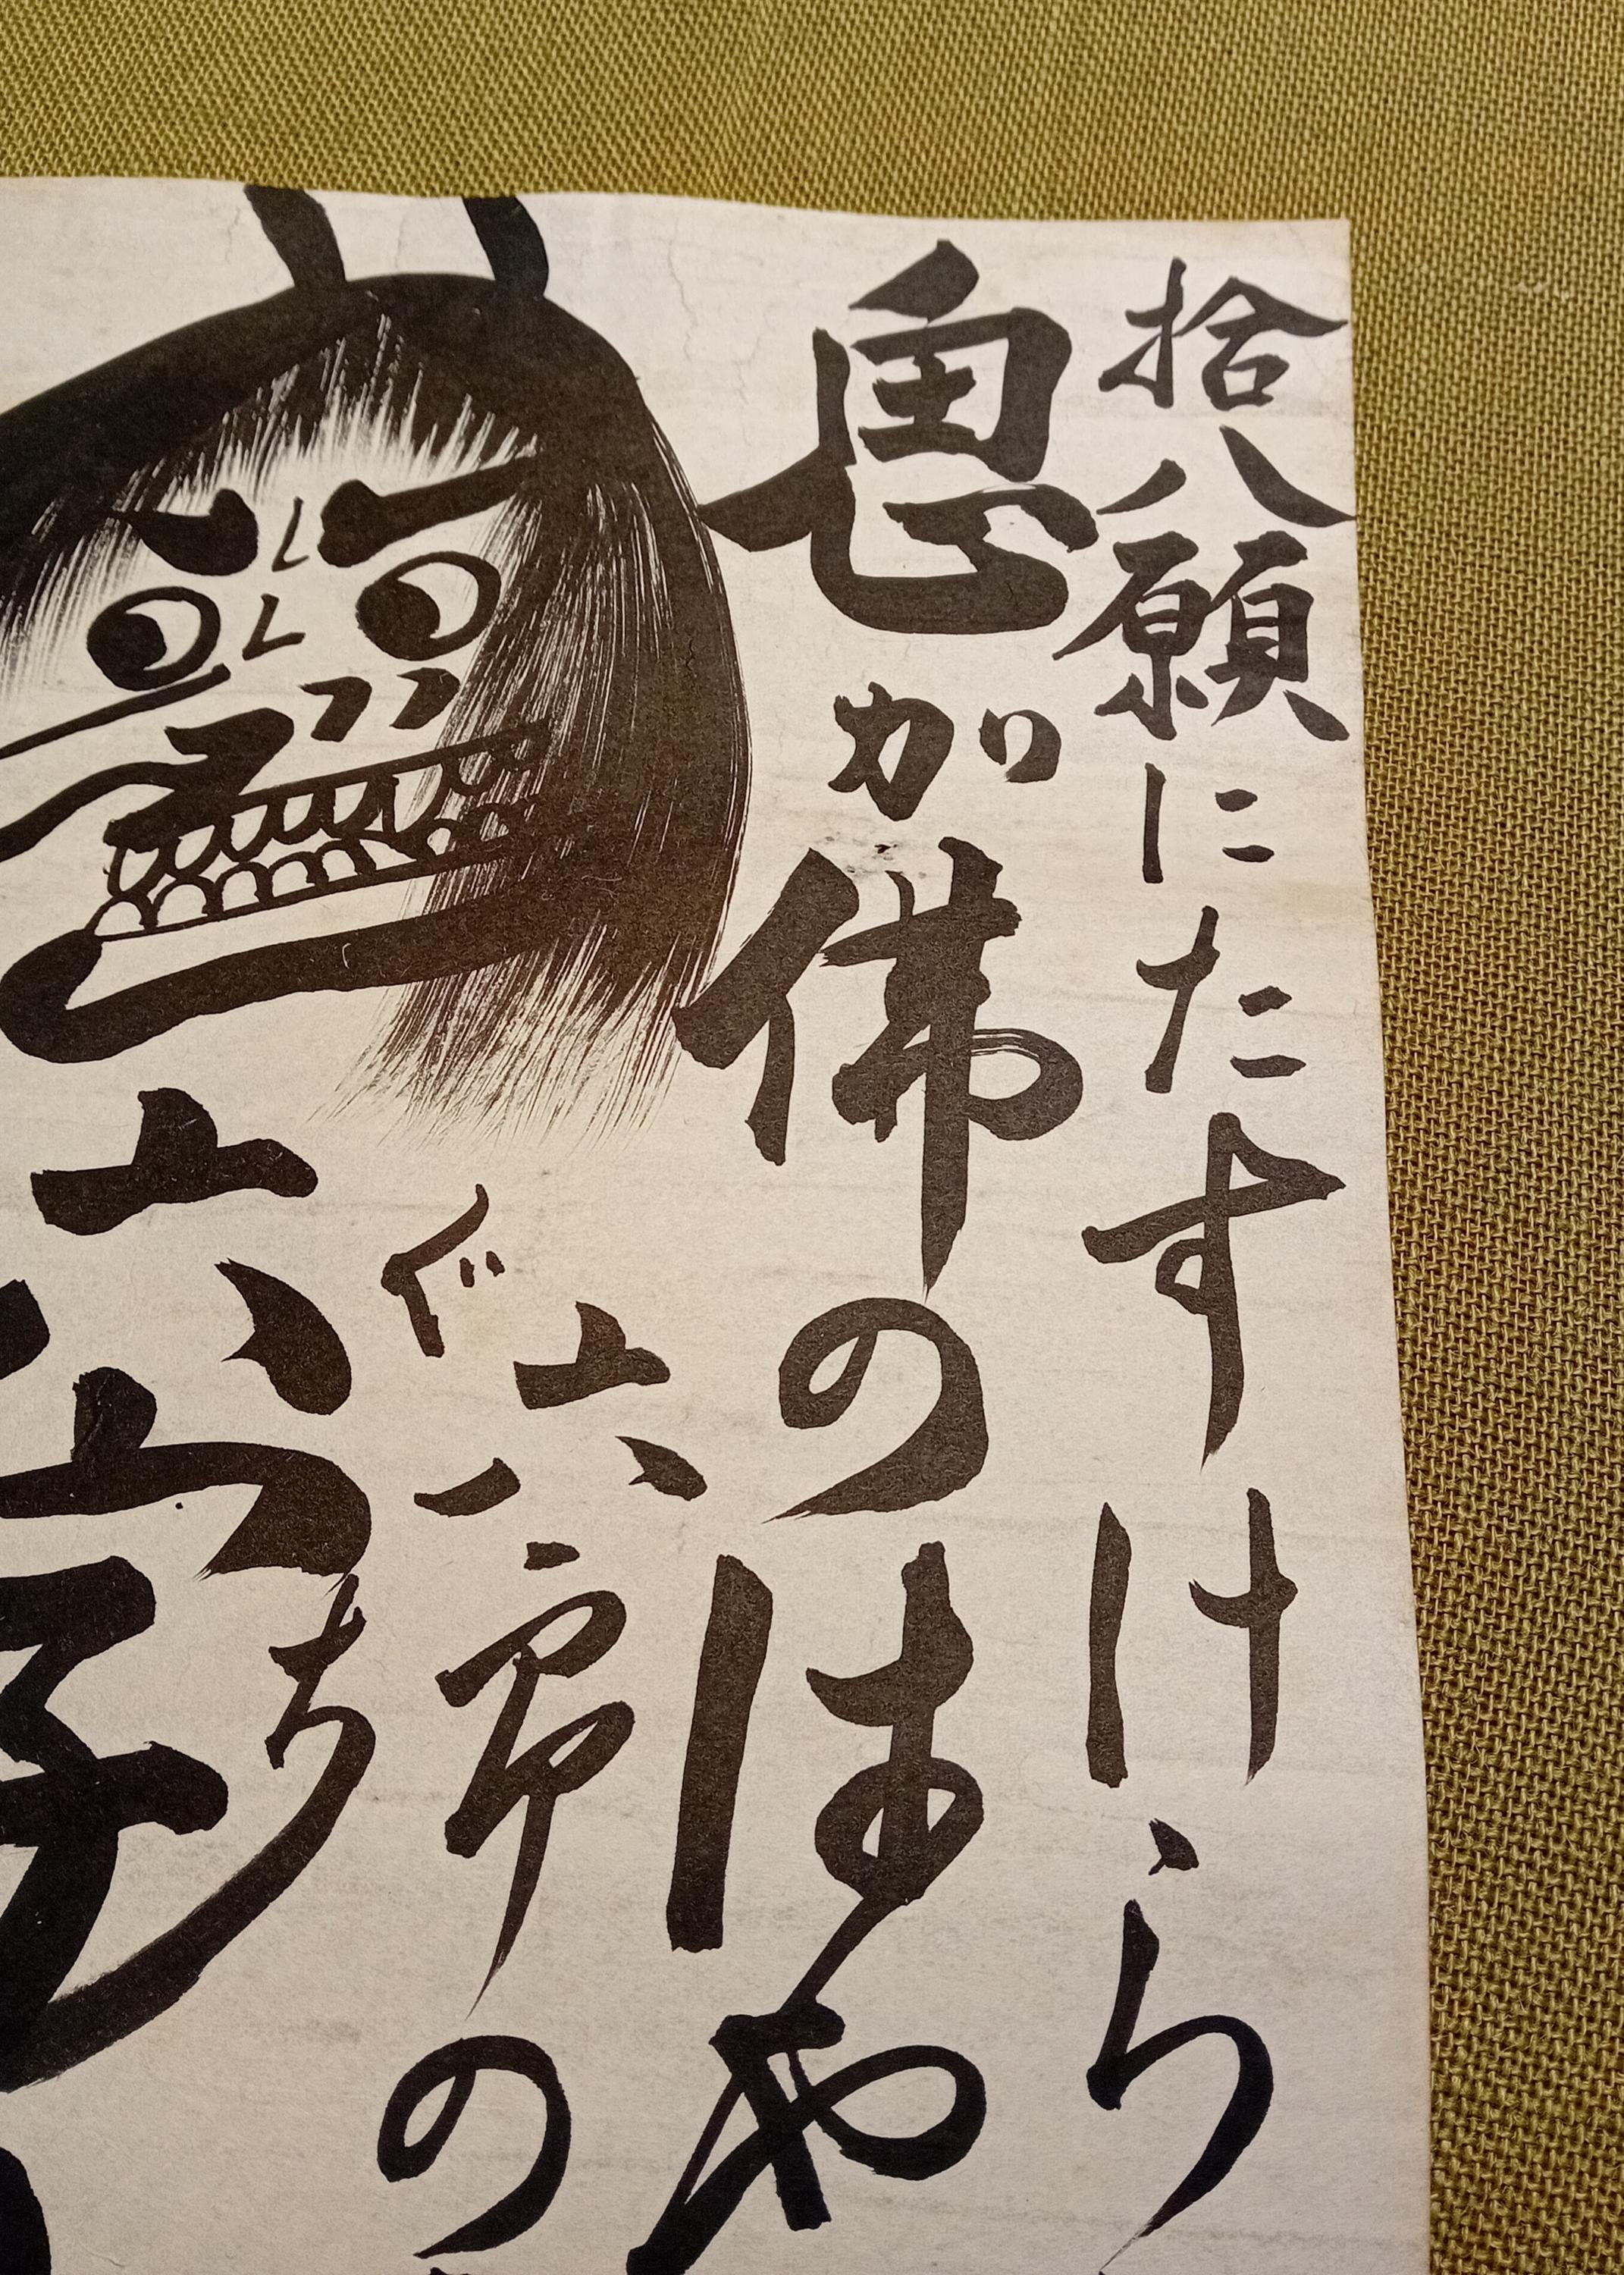 拾八願にたすけら
鬼加佛のはや
六字の
六字